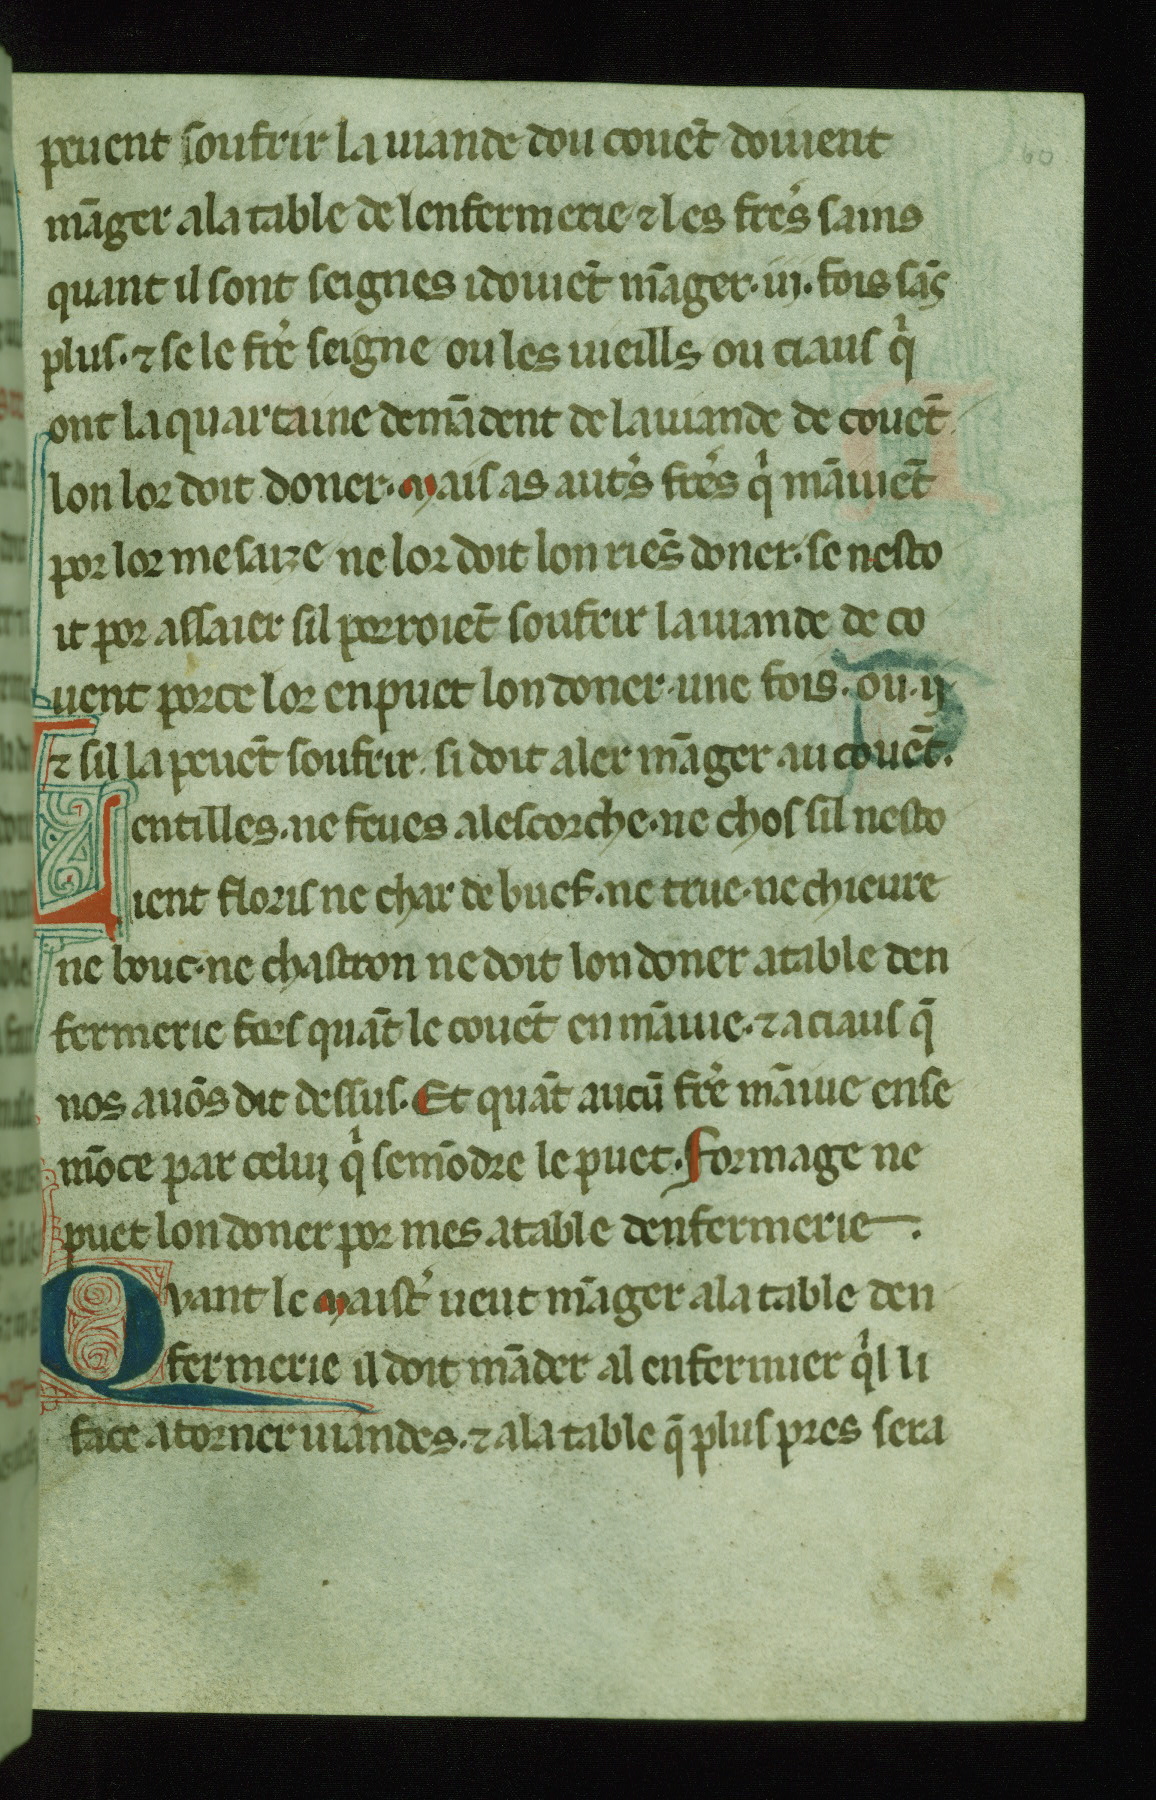 peuent soufrir la uiande dou couēt doiuent
māger ala table de lenfermerie ⁊ les fres sains
quant il sont seignes idoiuēt māger · iij · fois sās
plus · ⁊ se le frē seigne ou les uieills ou ciaus q̇
ont la quartaine demādent de la uiande de couēt
lon lor doit doner · Mais as autˢs frēs q̇ māiuēt
por lor mesaize ne lor doit lon riēs doner · se nesto
it por assaier sil porroiēt soufrir la uiande de co
uent porce lor en puet lon doner · une fois · ou · ij
⁊ sil la peuēt soufrir · si doit aler māger au couēt ·
Lentilles · ne feues alescorche · ne chos sil nesto
ient floris ne char de buef · ne true · ne chieure
ne bouc · ne chastron ne doit lon doner atable den
fermerie fors quāt le couēt en māiue · ⁊ aciaus q̄
nos auōs dit dessus · Et quāt aucū frē māiue ense
mōce par celui q̇ semōdre le puet · Formage ne
puet lon doner por mes atable denfermerie ·
Quant le Maistˢ ueut māger ala table den
fermerie il doit māder al enfermier q̇l li
face atorner uiandes · ⁊ ala table q̄ plus pres sera